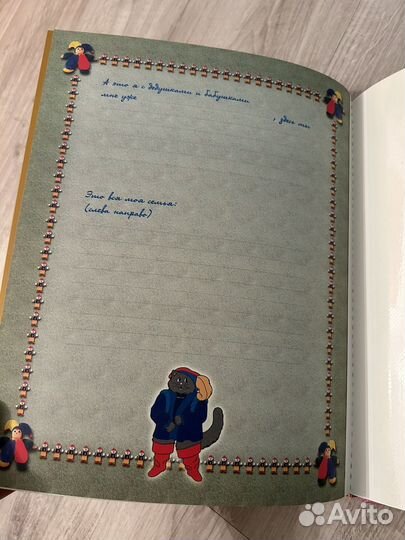 А это я с дедушками и бабушками
мне уже
, здесь мы
Это вся моя семья:
(слева направо)
Avito